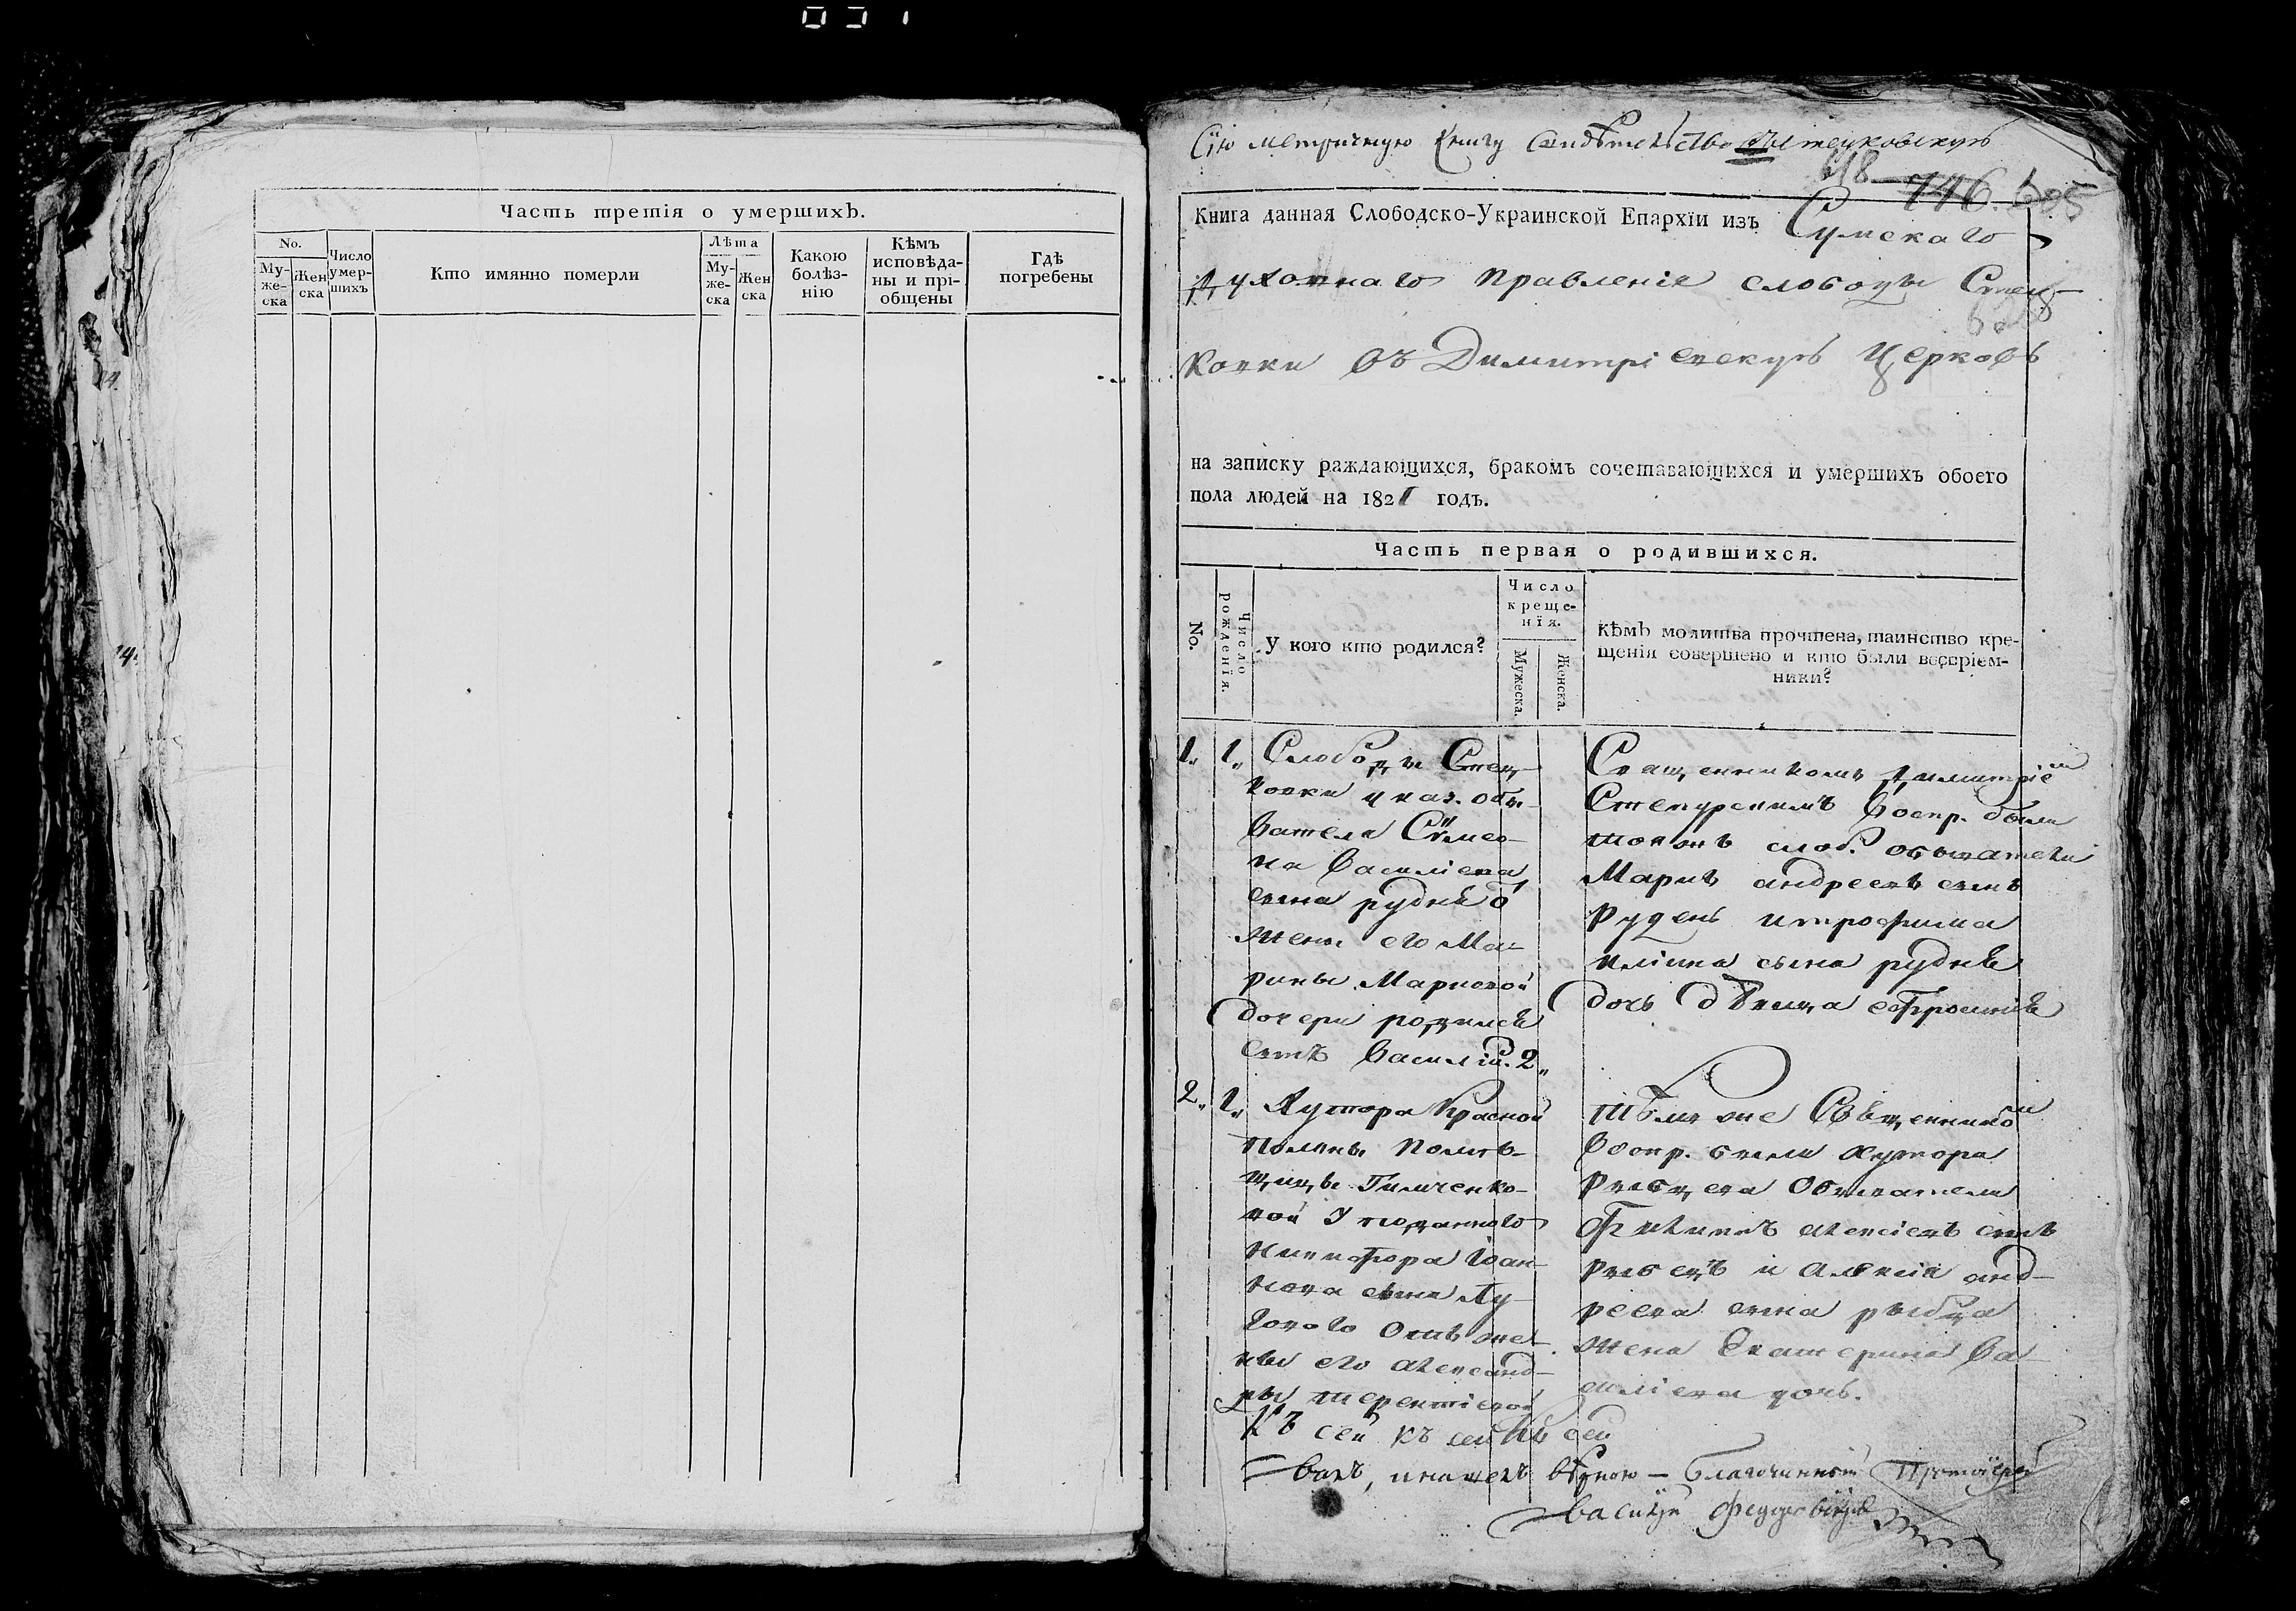 Часть третія о умершихъ.
No.
Му-
же-
ска
Жен
ска
Число
умер-
шихъ
Кто имянно померли
Лѣта
Му-
же-
ска
Жен
ска
Какою
болѣз-
нію
Кѣмъ
исповѣда-
ны и прі-
общены
Гдѣ
погребены
Сїю метричную книгу
746.
Книга данная Слободско-Украинской Епархїи изъ Сумскаго
Духовнаго Правленія слободы Стец-
ковки въ Димитріевскую Церковь
на записку раждающихся, бракомъ сочетавающихся и умершихъ обоего
пола людей на 1821 годъ.
Часть первая о родившихся.
No.
Число
рожденїя.
У кого кто родился?
Число
креще-
нїя.
Мужеска.
Женска.
Кѣмъ молитва прочтена, таинство кре-
щенїя совершено и кто были воспрїем-
ники?
1. 1. Слободы Стец-
ковки указ. обы-
вателя Сѵмео-
на Василіева
сына рудня о
жены его Ма-
рины Марковой
дочери родился
сынъ Василій. 2
Священникомъ Димитріем
Степурскимъ Воспр. были
той слоб. обыватели
Марко андреевъ сынъ
Рудень и трофима
сына рудня
дочь дѣвица ефросинія
2. 1. Хутора Красной
Поляны Помѣ-
щицы Гилченко-
вой У подданного
Никифора Іоан-
нова сына Лу-
гового отъ же-
ны его александ-
ры терентіевой
Тѣмъ же Священником
Воспр. были Хутора
Рыбцева Обыватели
Филипъ алексіевъ сынъ
рыбецъ и Алексія анд-
реева сына рыбца
жена Екатерина Ва-
силіева дочь.
Къ сей къ сей къ сей
валъ, и нашелъ вѣрною — благочинный Протоіерей
Василій Федоровскій